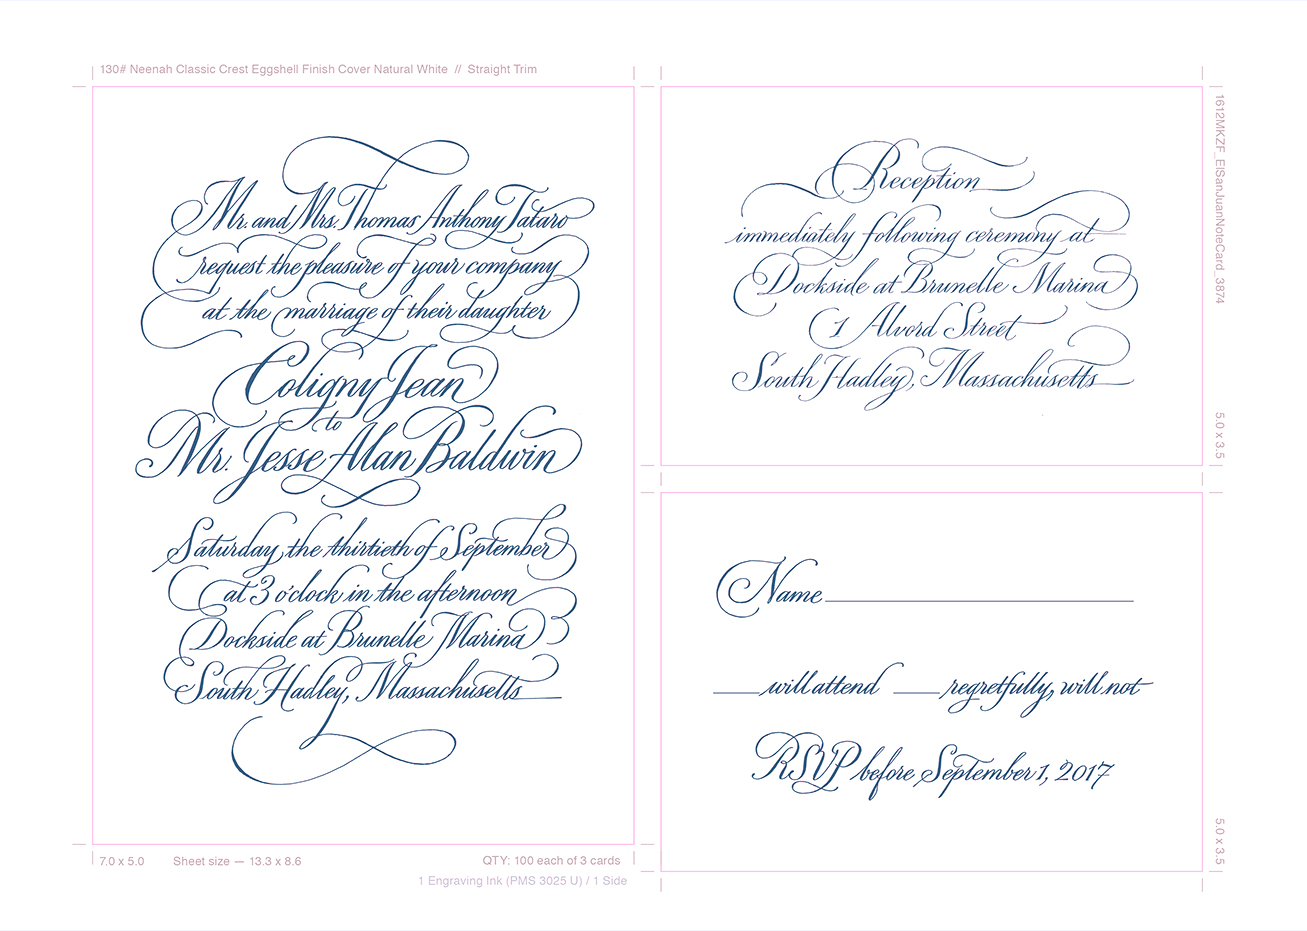 130# Neenah Classic Crest Eggshell Finish Cover Natural White // Straight Trim
Mr. and Mrs. Thomas Anthony Tataro
request the pleasure of your company
at the marriage of their daughter
Coligny Jean
to
Mr. Jesse Alan Baldwin
Saturday, the thirtieth of September
at 3 o'clock in the afternoon
Dockside at Brunelle Marina
South Hadley, Massachusetts
7.0 x 5.0 Sheet size — 13.3 x 8.6 QTY: 100 each of 3 cards
1 Engraving Ink (PMS 3025 U) / 1 Side
Reception
immediately following ceremony at
Dockside at Brunelle Marina
1 Alvord Street
South Hadley, Massachusetts
1612MKZF_ElSanJuanNoteCard_3874
5.0 x 3.5
Name
will attend regretfully, will not
RSVP before September 1, 2017
5.0 x 3.5